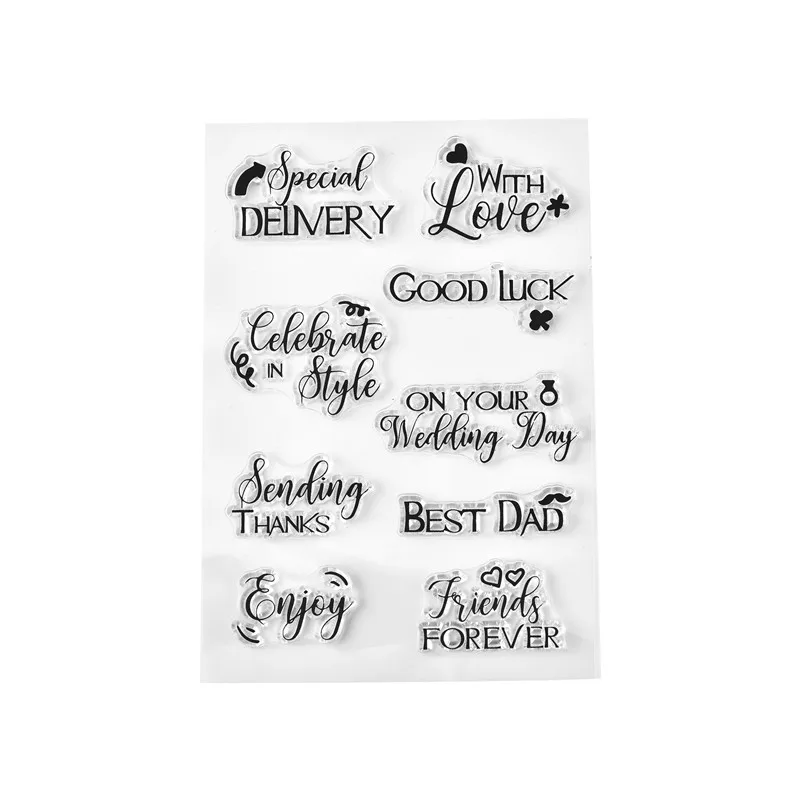 Special
DELIVERY
WITH
Love
GOOD LUCK
Celebrate
IN
Style
ON YOUR
Wedding Day
Sending
THANKS
BEST DAD
Enjoy
Friends
FOREVER